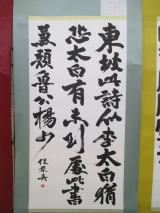 東坡此詩似李太白猶
恐太白有未到處此書
兼顏魯公楊少